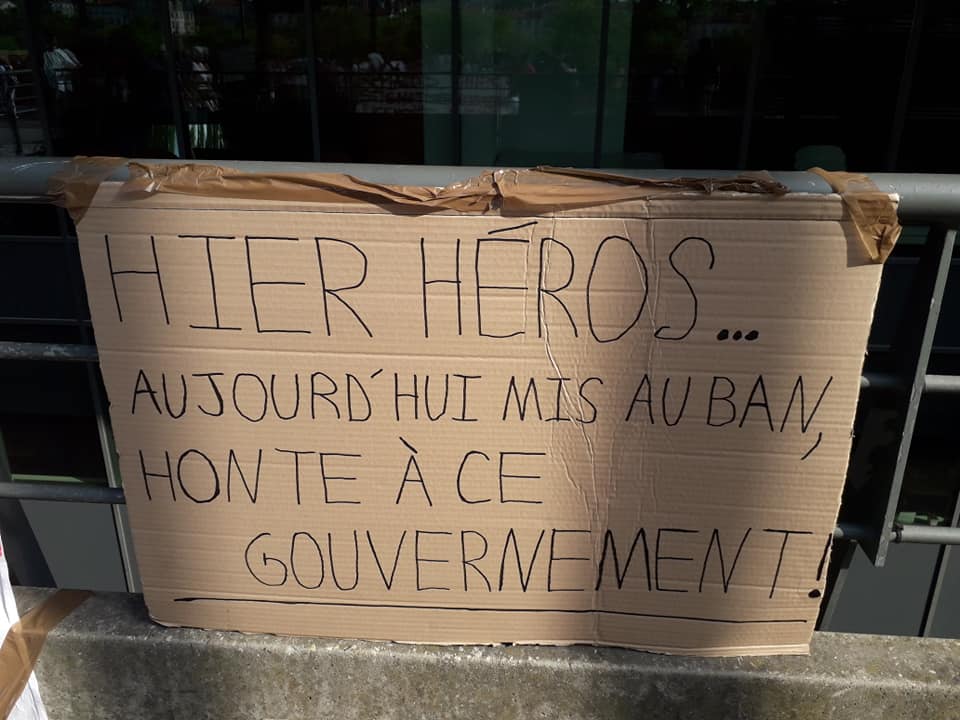 HIER HÉROS...
AUJOURD'HUI MIS AU BAN,
HONTE À CE
GOUVERNEMENT!